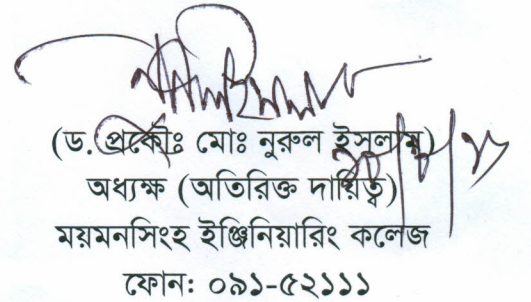 (ড. প্রকৌঃ মোঃ নুরুল ইসলাম)
অধ্যক্ষ (অতিরিক্ত দায়িত্ব)
ময়মনসিংহ ইঞ্জিনিয়ারিং কলেজ
ফোন: ০৯১-৫২১১১